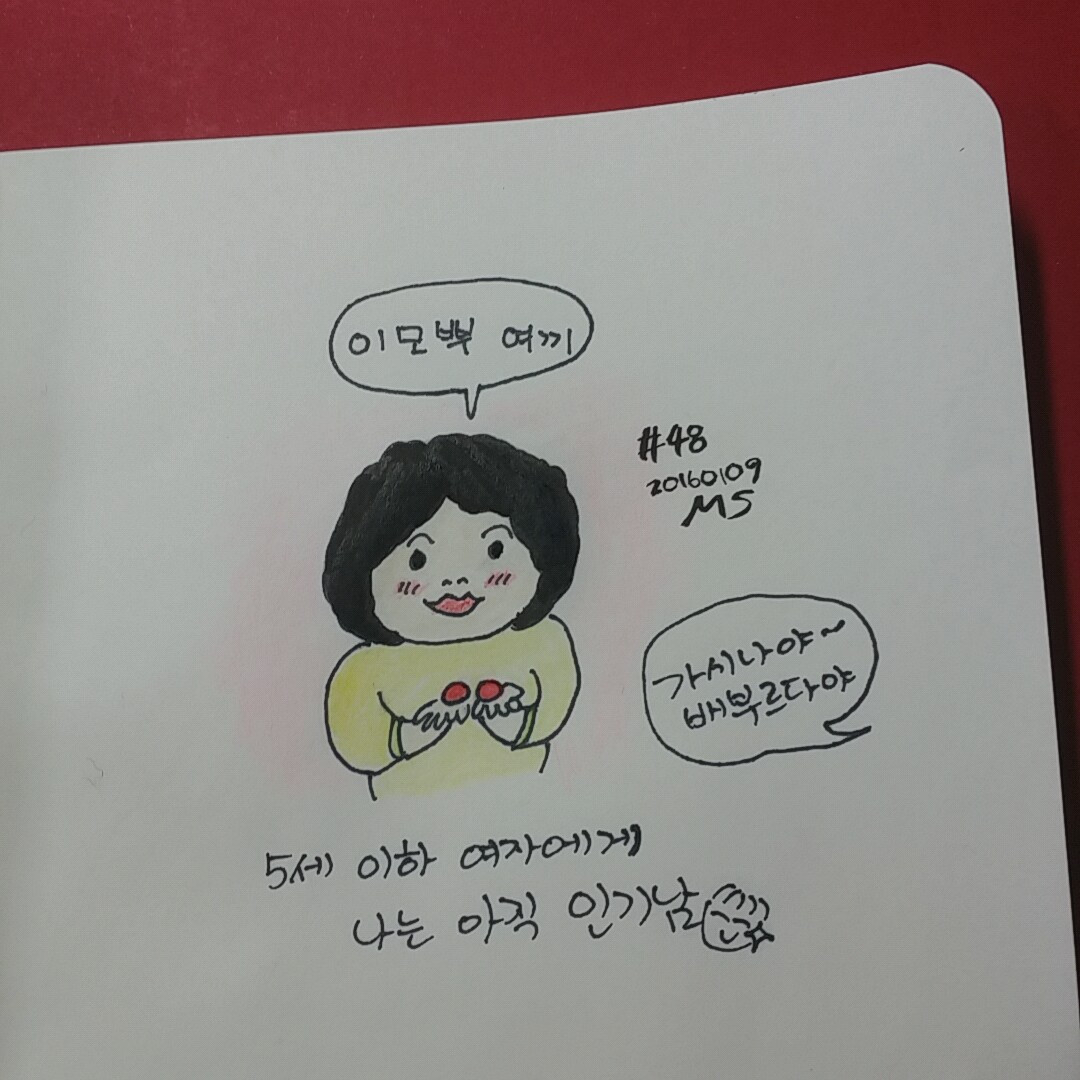 이모뿍 여끼
#48
20160109
MS
가시나야~
배부르다야
5세 이하 여자에게
나는 아직 인기남